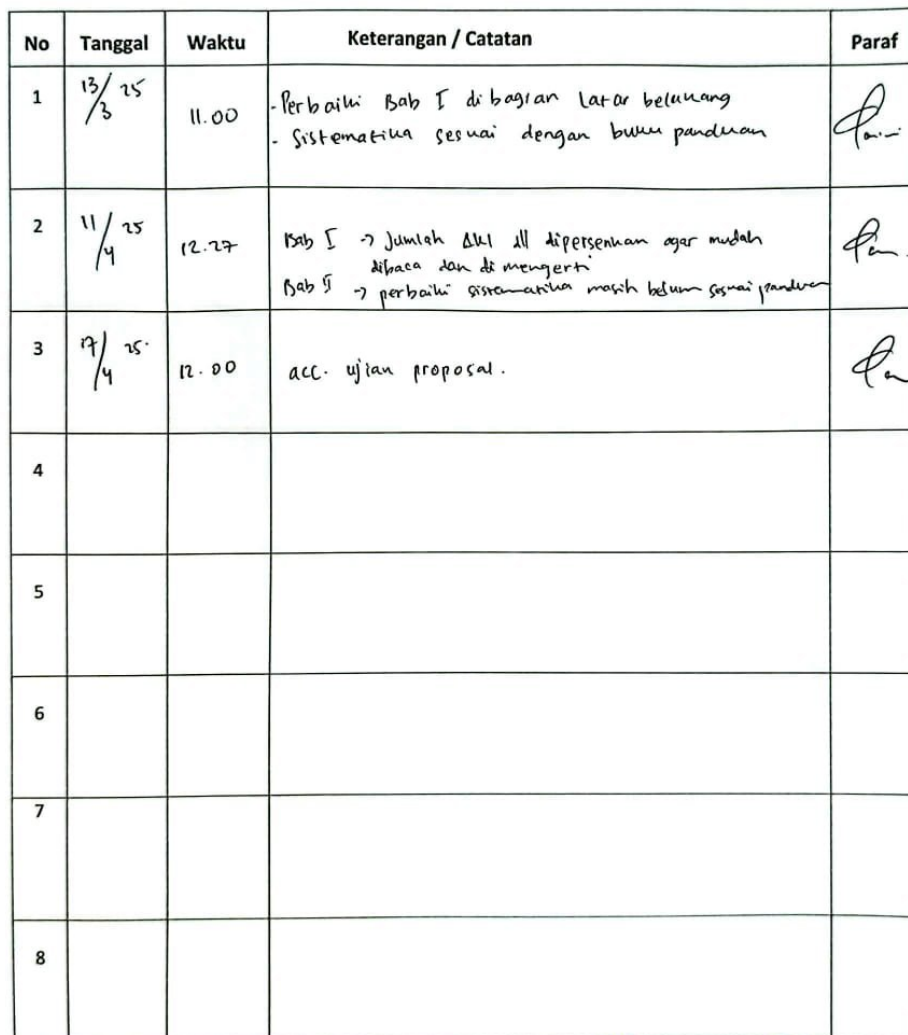 No Tanggal Waktu Keterangan / Catatan Paraf
1 13/3 25 11.00 - Perbaiki Bab I di bagian Latar belakang
- Sistematika sesuai dengan buku panduan
2 11/4 25 12.27 Bab I -> Jumlah AKI dll dipersenkan agar mudah
dibaca dan di mengerti
Bab II -> perbaiki sistematika masih belum sesuai panduan
3 17/4 25. 12.00 acc. ujian proposal.
4
5
6
7
8